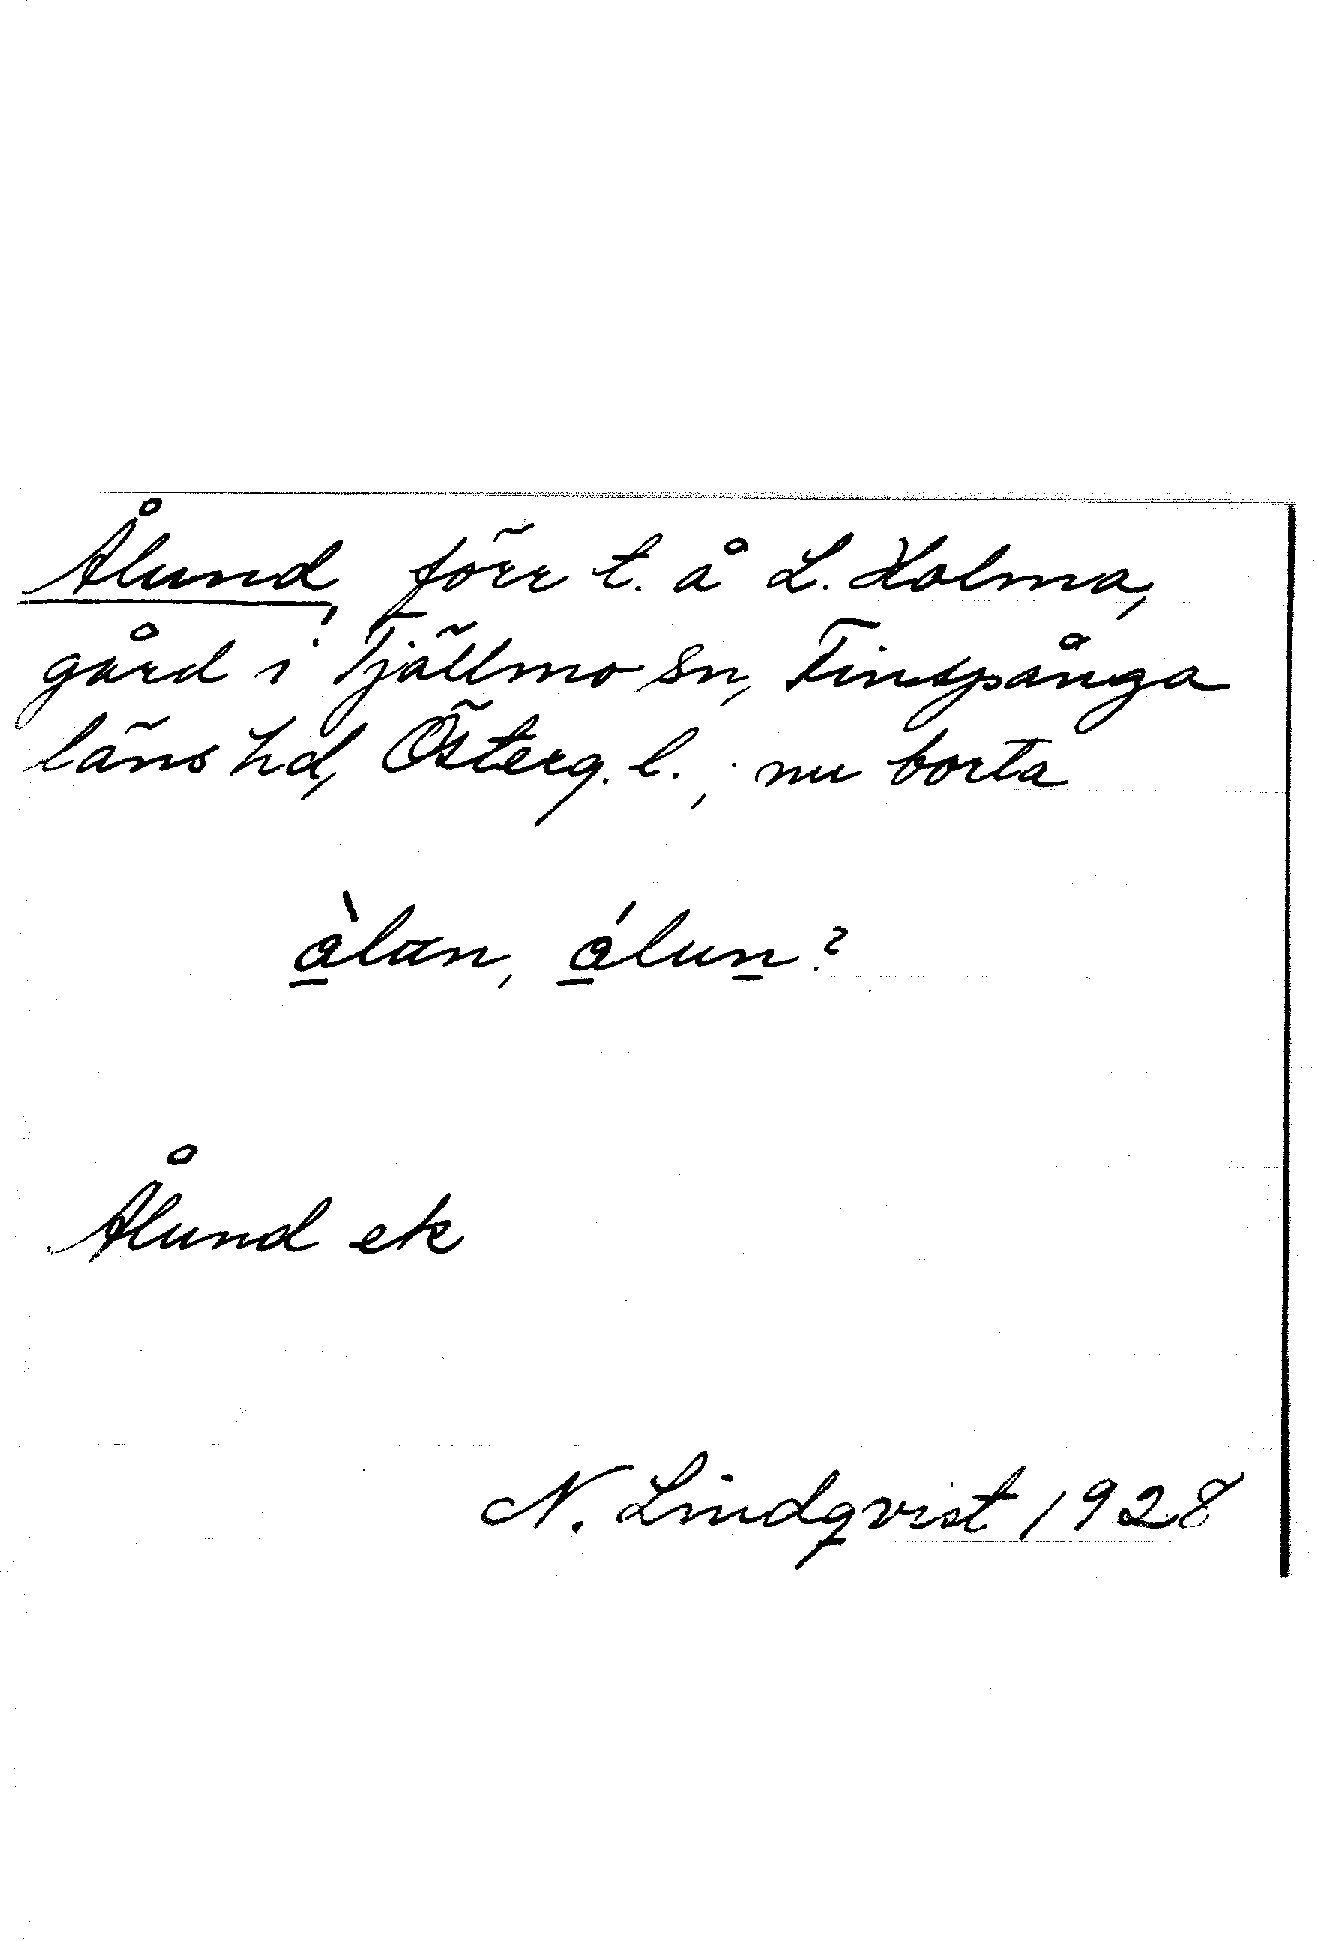 Ålund, förr t. å L. Holma,
gård i Tjällmo sn, Finspånga
läns hd, Österg. l.; nu borta
àlan, álun?
Ålund ek
N. Lindqvist 1928